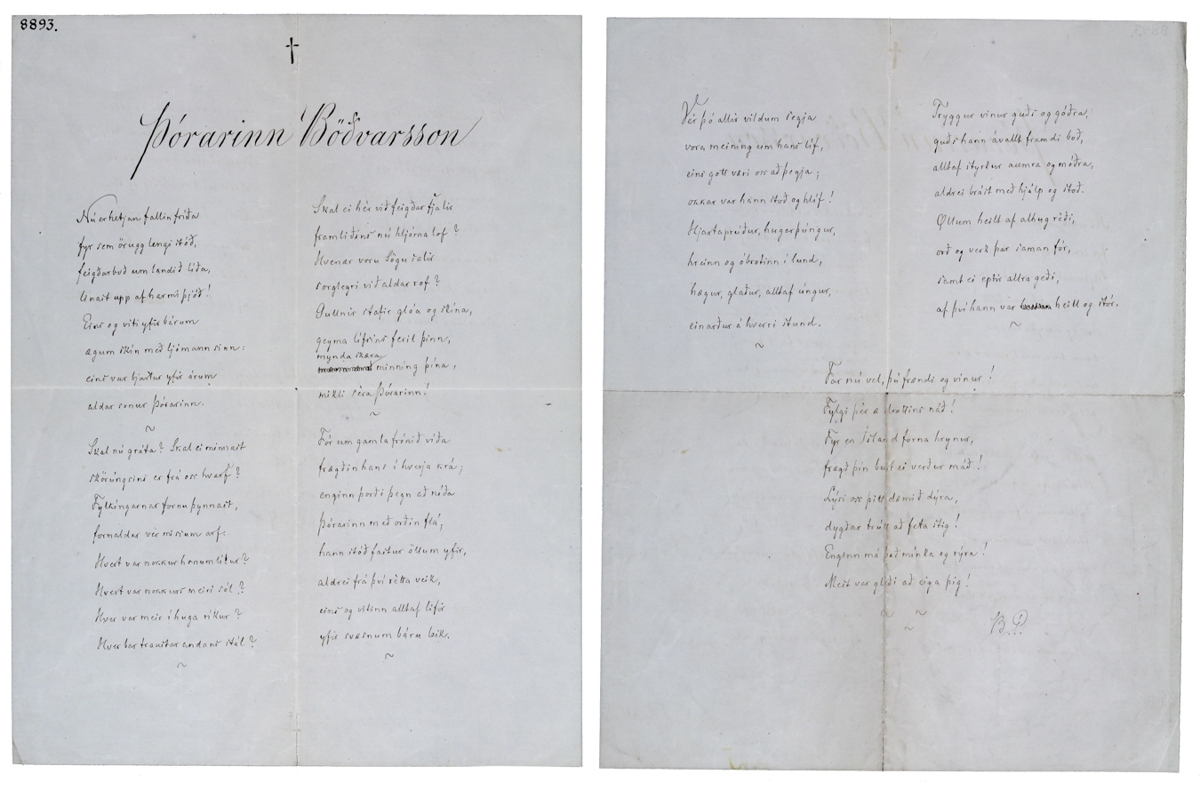 8893.
†
Þórarinn Böðvarsson
Nú er hetjan fallin fríða
fyr sem örugg lengi stóð,
feigðarboð um landið líða,
lenust upp af harmi þjóð!
Eins og viti yfir bárum
ægum skín með ljómann sinn:
eins var bjartur yfir árum
aldar sonur Þórarinn.
~
Skal nú gráta? Skal ei minnast
skörúngsins er frá oss hvarf?
Fylkíngarnar fornu þynnast,
fornaldar vér missum arf:
Hvert var nokkur hraumlitur?
Hvert var nokkurs meiri sól?
Hver var meir í huga ríkur?
Hver bar traustar andans stál?
~
Skal ei hér við feigðar fjalir
framliðins nú hljóma lof?
Hvenar voru Sögu salir
sorglegri við aldar rof?
Gullnir stafir glóa og skína,
geyma lífsins feril þinn,
mynda skæra
minning þína,
mikli séra Þórarinn!
~
Fór um gamla frónið víða
frægðin hans í hverja krá;
enginn þorði þegn að níða
Þórarinn með orðin flá;
hann stóð fastur öllum yfir,
aldrei frá því rétta veik,
eins og vitinn alltaf lifir
yfir svæsnum báru leik.
~
Vér þó allir vildum segja
vora meining um hans lof,
eins gott væri oss að þegja;
okkar var hann stoð og hlíf!
Hjartaprúður, hugarþúngur,
hreinn og óbrotinn í lund,
hægur, glaður, alltaf úngur,
einarður á hverri stund.
~
Tryggur vinur guðs og góðra,
guðs hann ávallt framdi boð,
alltaf styrkur aumra og móðra,
aldrei brást með hjálp og stoð.
Öllum heill af alhug réði,
orð og verk þar saman fór,
samt ei eptir allra geði,
af því hann var heill og stór.
~
Far nú vel, þú frændi og vinur!
Fylgi þér æ drottins náð!
Fyr en Ísland forna hrynur,
frægð þín burt ei verður máð!
Lýsi oss þitt dæmið dýra,
dygðar trútt að feta stig!
Enginn má það mínka og rýra!
Mest var gleði að eiga þig!
~ ~
~
B. G.